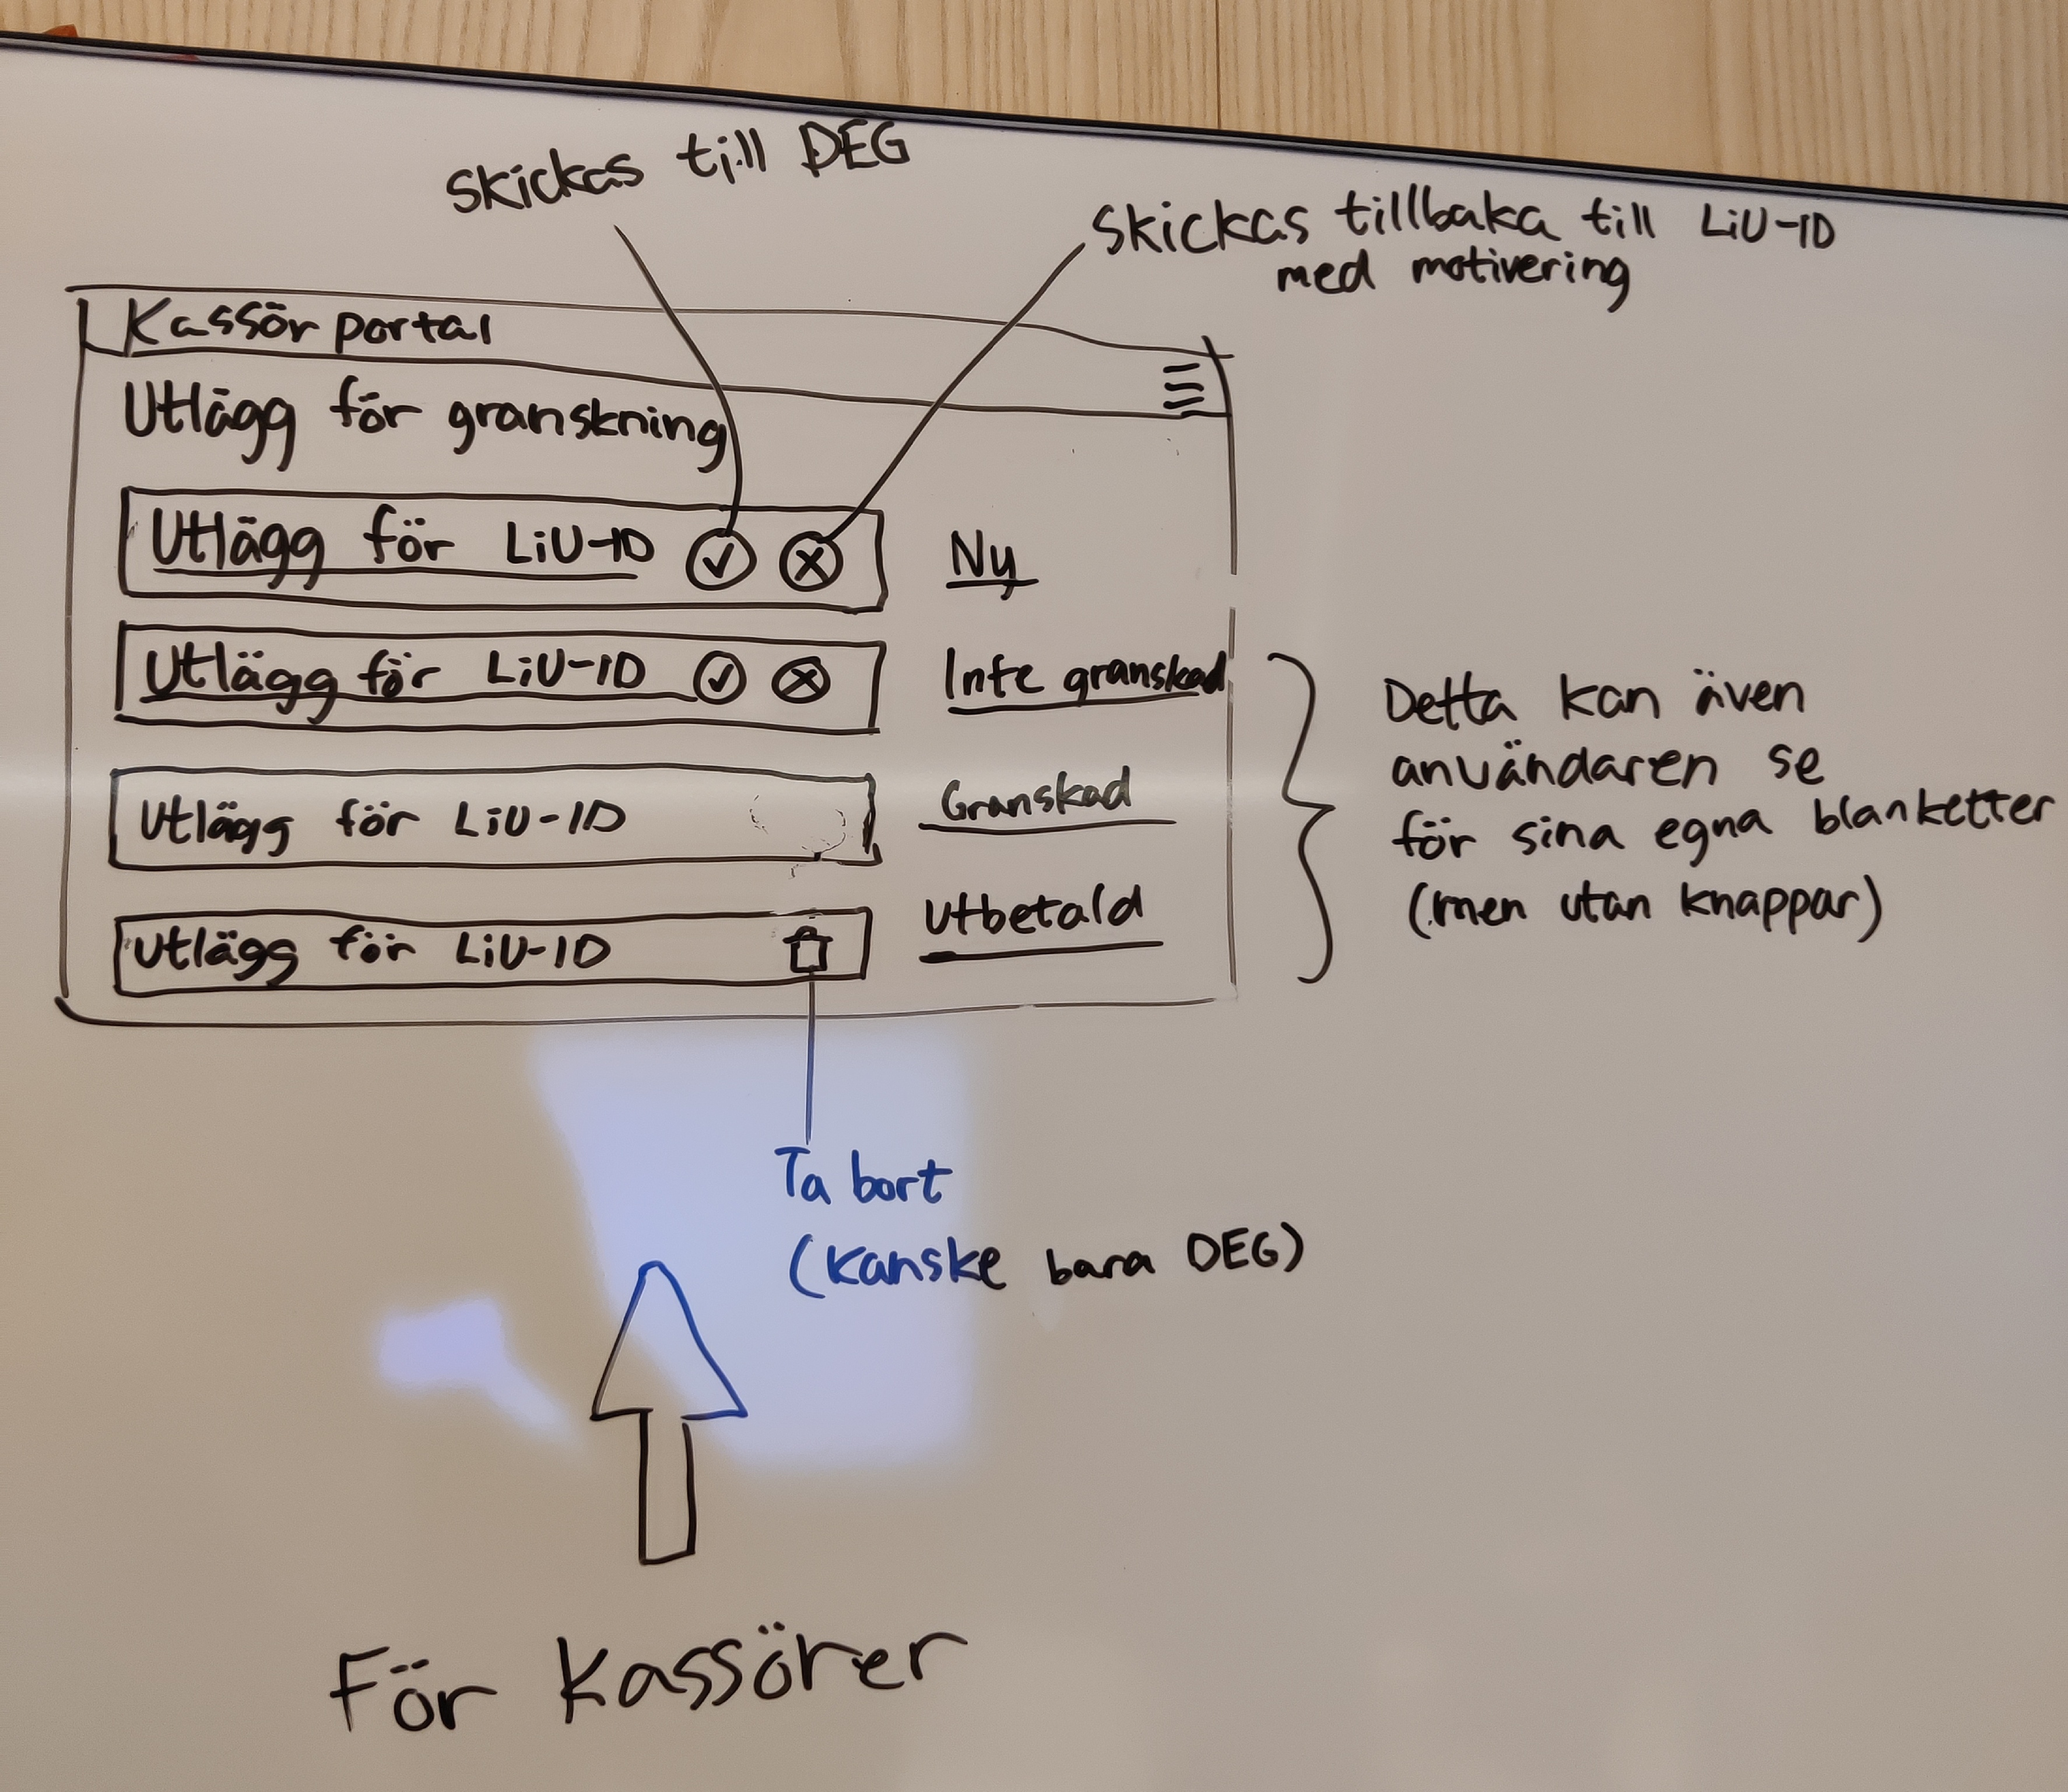 skickas till DEG
skickas tillbaka till LiU-ID
med motivering
Kassör portal
Utlägg för granskning
Utlägg för LiU-ID
Ny
Utlägg för LiU-ID
Inte granskad
Utlägg för LiU-ID
Granskad
Utlägg för LiU-ID
Utbetald
Detta kan även
användaren se
för sina egna blanketter
(men utan knappar)
Ta bort
(Kanske bara DEG)
För Kassörer